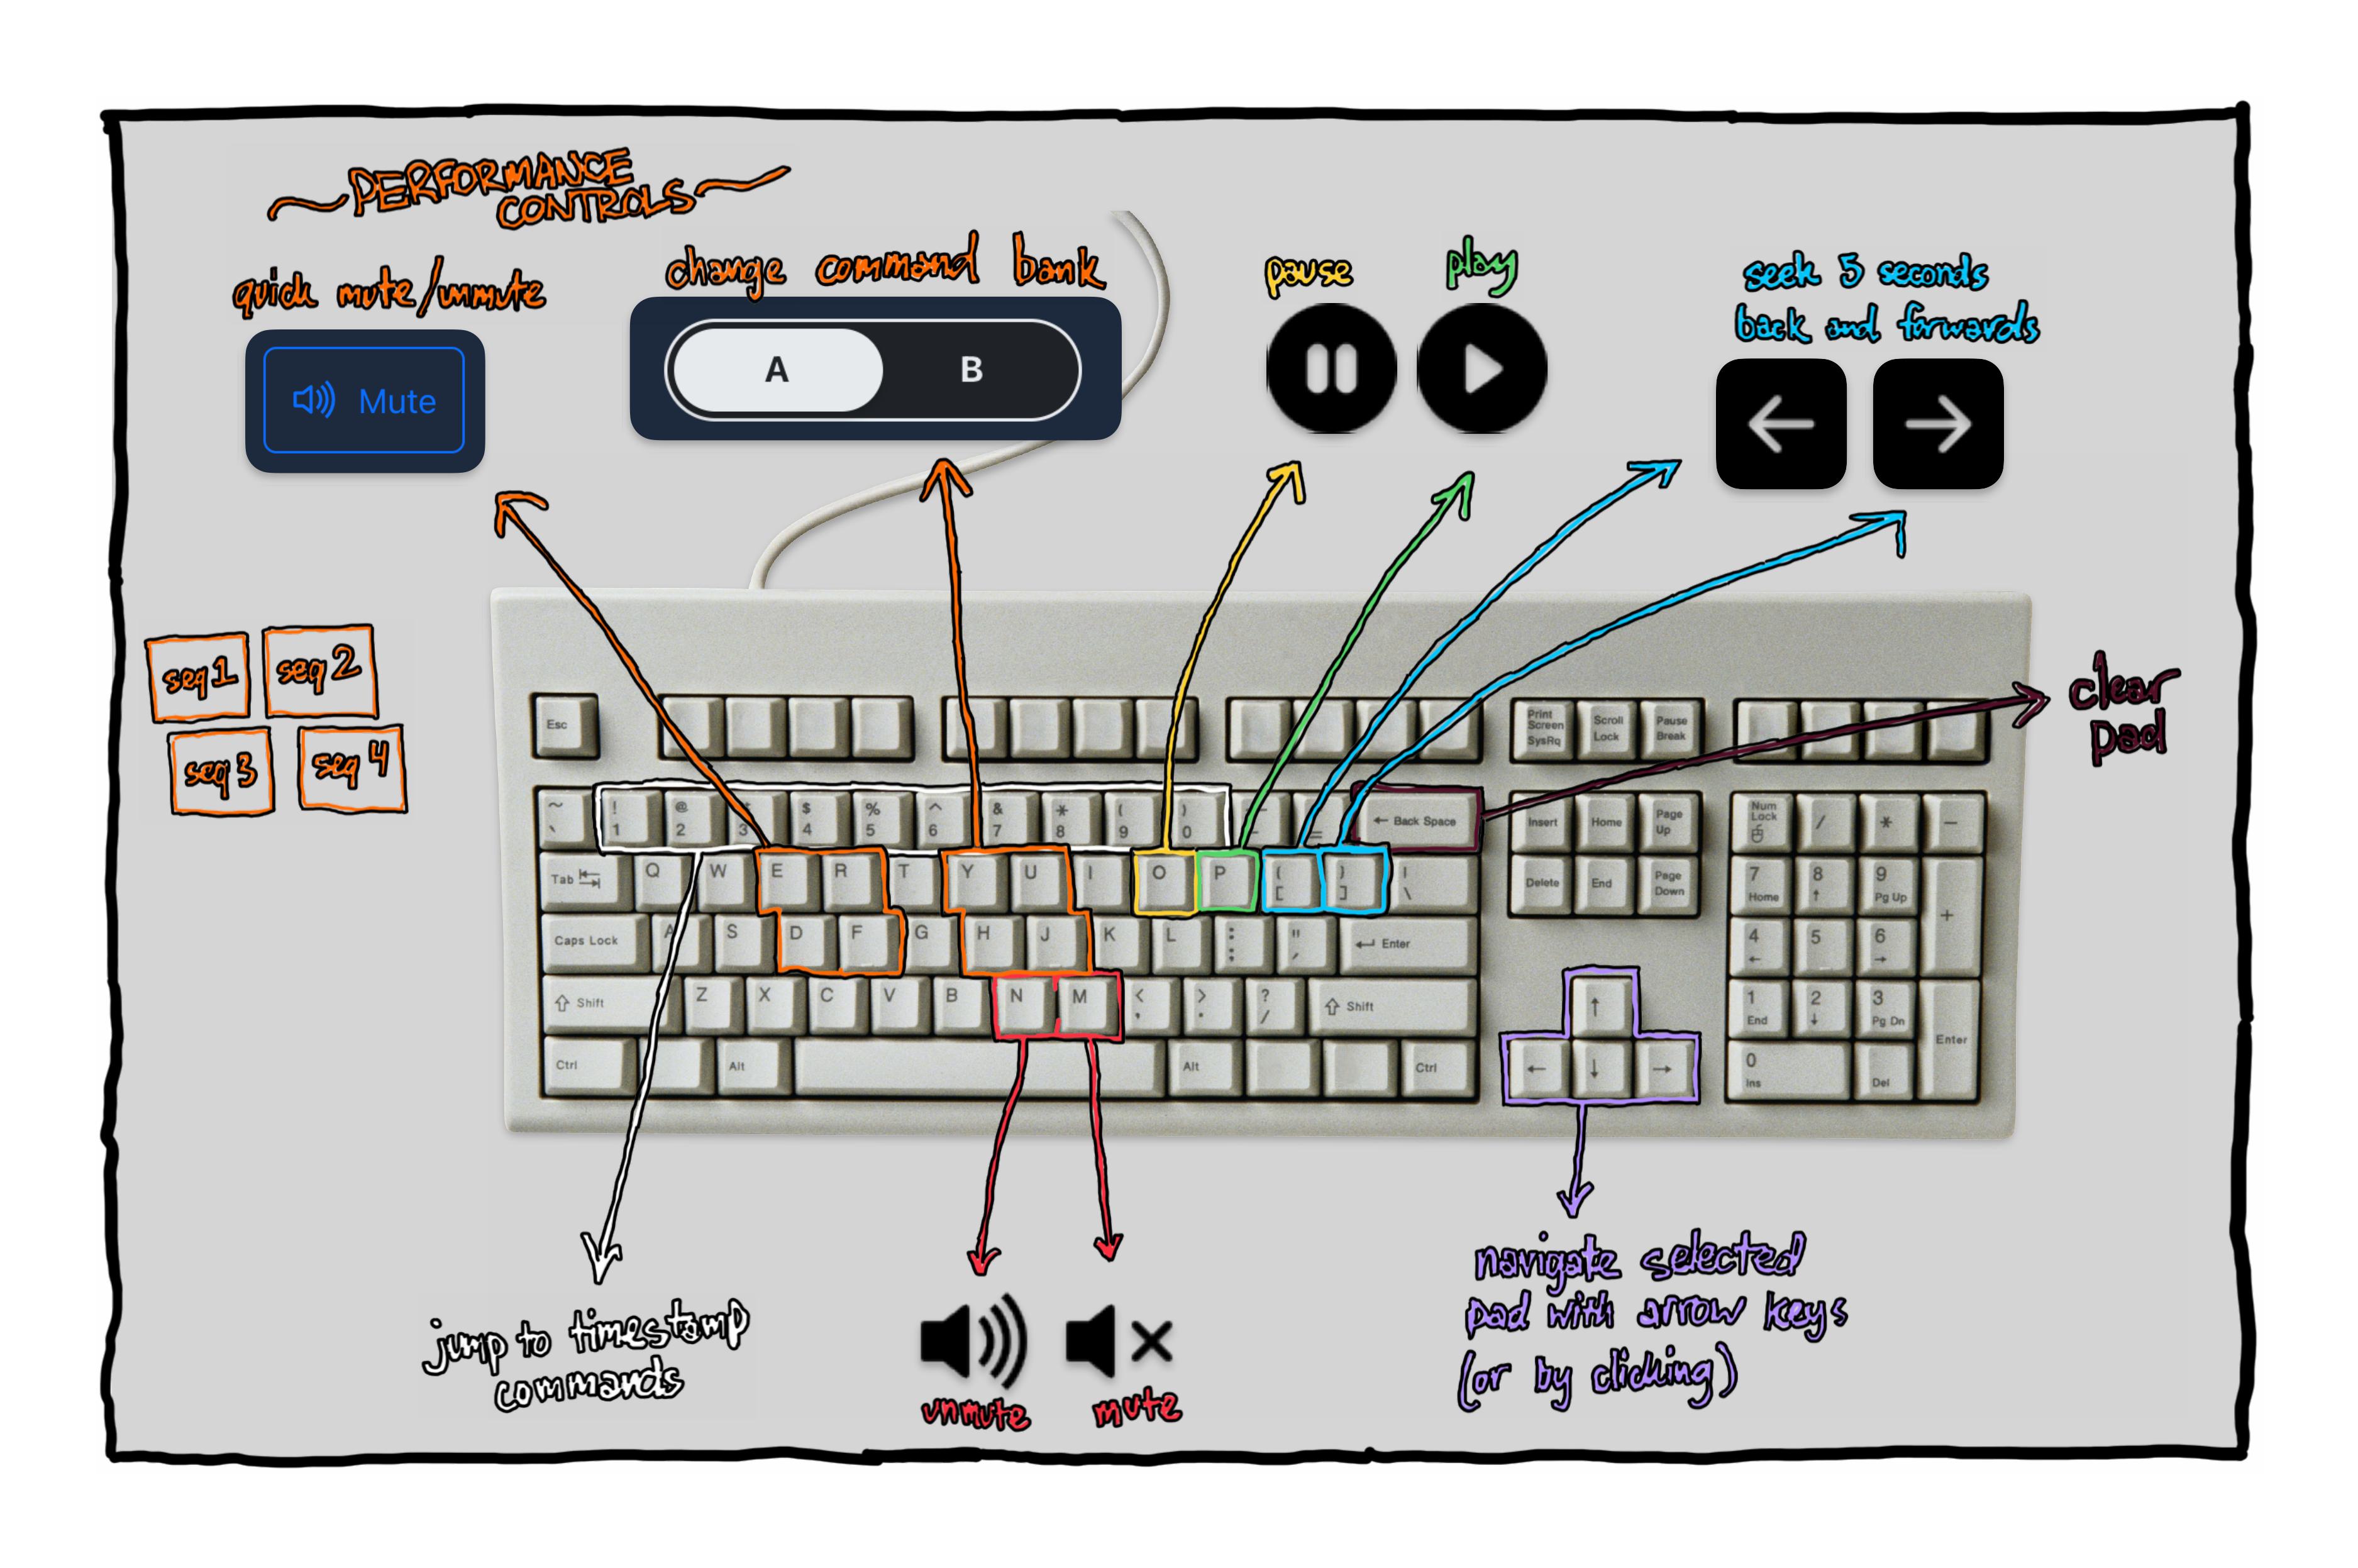 PERFORMANCE
CONTROLS
quick mute/unmute
change command bank
pause
play
seek 5 seconds
back and forwards
Mute
A B
seq 1 seq 2
seq 3 seq 4
clear
pad
Esc
Print Screen SysRq
Scroll Lock
Pause Break
~ `
! 1
@ 2
3
$ 4
% 5
^ 6
& 7
* 8
( 9
) 0
=
← Back Space
Insert Home Page Up
Num Lock / * –
Tab Q W E R T Y U I O P
{ [
} ]
| \
Delete End Page Down
7 Home
8 ↑
9 Pg Up
+
Caps Lock A S D F G H J K L
: ;
" '
↵ Enter
4 ←
5
6 →
⇧ Shift Z X C V B N M
< ,
> .
? /
⇧ Shift
↑
1 End
2 ↓
3 Pg Dn
Enter
Ctrl Alt Alt Ctrl
← ↓ →
0 Ins
Del
jump to timestamp
commands
unmute
mute
navigate selected
pad with arrow keys
(or by clicking)